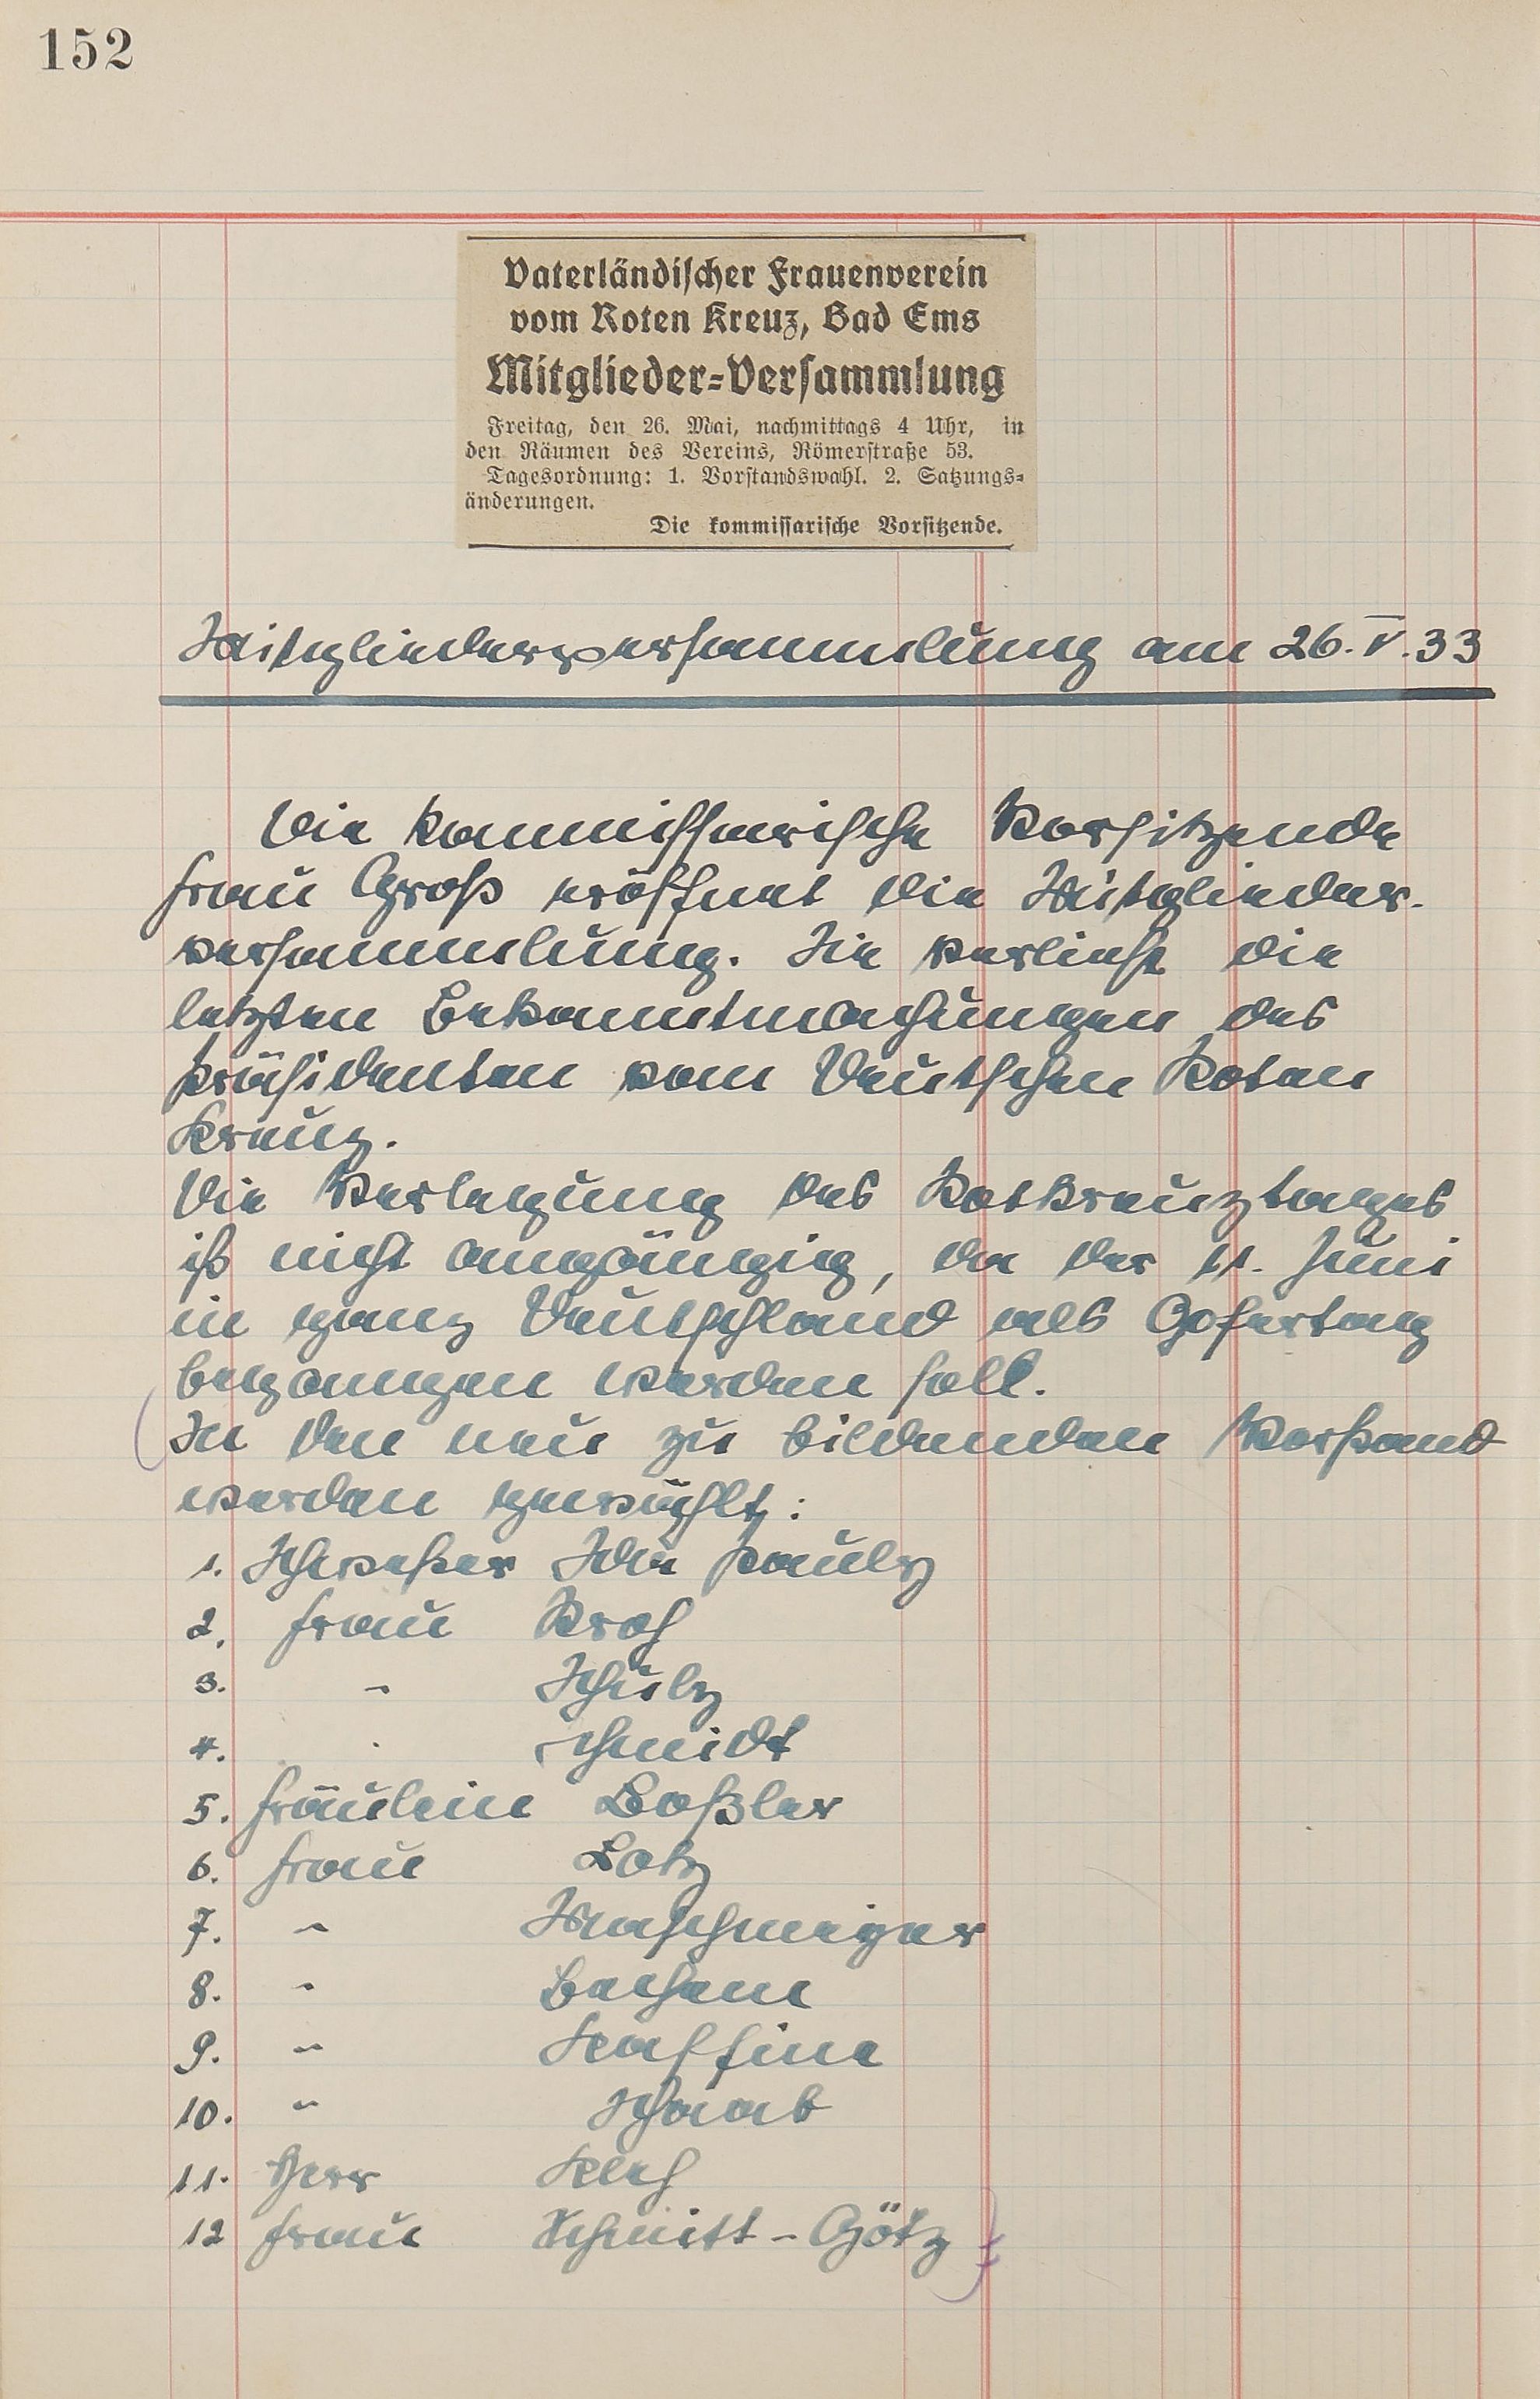 152
Vaterländischer Frauenverein
vom Roten Kreuz, Bad Ems
Mitglieder-Versammlung
Freitag, den 26. Mai, nachmittags 4 Uhr, in
den Räumen des Vereins, Römerstraße 53.
Tagesordnung: 1. Vorstandswahl. 2. Satzungs-
änderungen.
Die kommissarische Vorsitzende.
Mitgliederversammlung am 26. V. 33
Die kommissarische Vorsitzende
Frau Groß eröffnet die Mitglieder-
versammlung. Sie verliest die
letzten Bekanntmachungen des
Präsidenten vom Deutschen Roten
Kreuz.
Die Verlegung des Rotkreuztages
ist nicht angängig, da der 11. Juni
in ganz Deutschland als Opfertag
begangen werden soll.
In den neu zu bildenden Vorstand
werden gewählt:
1. Schwester Ida Pauly
2. Frau
3. " Schulz
4. " Schmidt
5. Fräulein Boßler
6. Frau Lotz
7. "
8. " Bechem
9. " Kaffine
10. " Schaab
11. Herr
12 Frau Schmitt-Götz